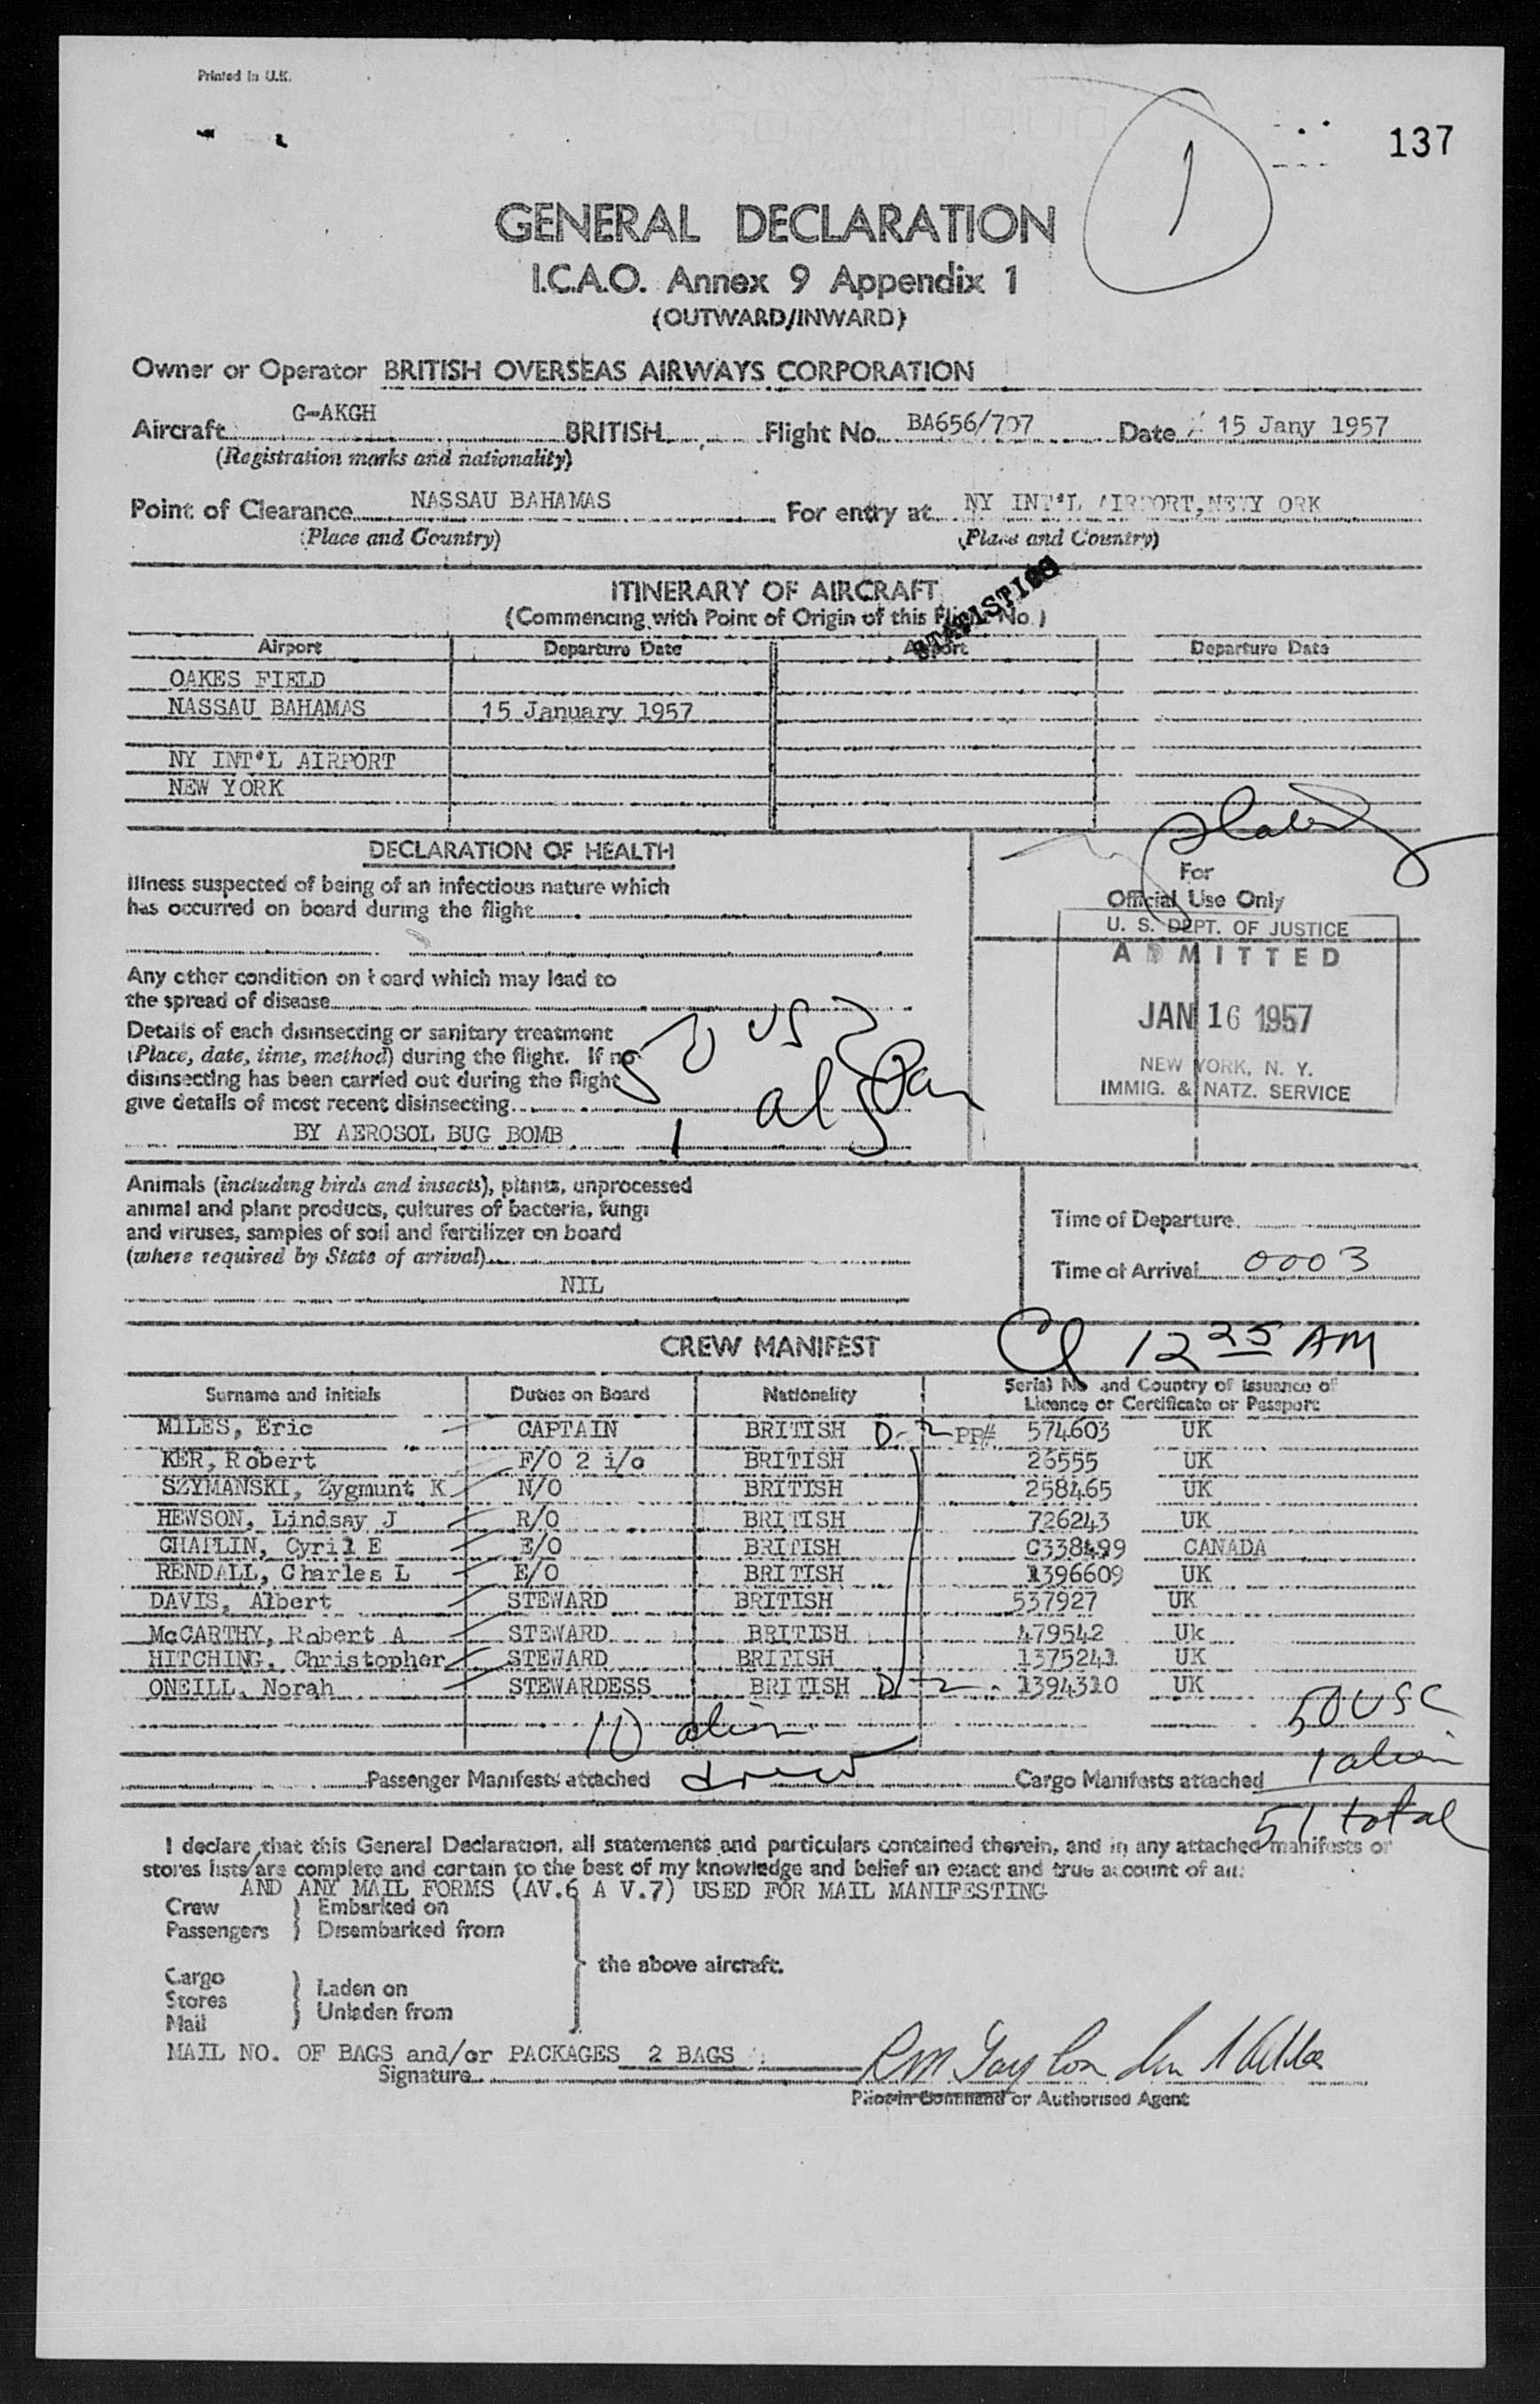 Printed in U.K.
137
1
GENERAL DECLARATION
I.C.A.O. Annex 9 Appendix 1
(OUTWARD/INWARD)
Owner or Operator BRITISH OVERSEAS AIRWAYS CORPORATION
Aircraft G-AKGH BRITISH Flight No. BA656/707 Date 15 Jany 1957
(Registration marks and nationality)
Point of Clearance NASSAU BAHAMAS For entry at NY INT'L AIRPORT, NEWY ORK
(Place and Country) (Place and Country)
STATISTICS
ITINERARY OF AIRCRAFT
(Commencing with Point of Origin of this Flight No.)
Airport Departure Date Airport Departure Date
OAKES FIELD
NASSAU BAHAMAS 15 January 1957
NY INT'L AIRPORT
NEW YORK
DECLARATION OF HEALTH
Illness suspected of being of an infectious nature which
has occurred on board during the flight
For
Official Use Only
U. S. DEPT. OF JUSTICE
ADMITTED
JAN 16 1957
NEW YORK, N. Y.
IMMIG. & NATZ. SERVICE
Any other condition on board which may lead to
the spread of disease
Details of each disinsecting or sanitary treatment
(Place, date, time, method) during the flight. If no
disinsecting has been carried out during the flight
give details of most recent disinsecting.
BY AEROSOL BUG BOMB
50 US
1
Animals (including birds and insects), plants, unprocessed
animal and plant products, cultures of bacteria, fungi
and viruses, samples of soil and fertilizer on board
(where required by State of arrival)
NIL
Time of Departure
Time of Arrival 0003
12 25 AM
CREW MANIFEST
Surname and Initials Duties on Board Nationality Serial No and Country of Issuance of
Licence or Certificate or Passport
MILES, Eric CAPTAIN BRITISH D-2 PP# 574603 UK
KER, Robert F/O 2 i/c BRITISH 26555 UK
SZYMANSKI, Zygmunt K N/O BRITISH 258465 UK
HEWSON, Lindsay J R/O BRITISH 726243 UK
CHAPLIN, Cyril E E/O BRITISH C338499 CANADA
RENDALL, Charles L E/O BRITISH 1396609 UK
DAVIS, Albert STEWARD BRITISH 537927 UK
McCARTHY, Robert A STEWARD BRITISH 479542 Uk
HITCHING, Christopher STEWARD BRITISH 1375241 UK
ONEILL, Norah STEWARDESS BRITISH D-2 1394310 UK
10 alien
crew
50 USC
1 alien
51 total
Passenger Manifests attached Cargo Manifests attached
I declare that this General Declaration, all statements and particulars contained therein, and in any attached manifests or
stores lists are complete and certain to the best of my knowledge and belief an exact and true account of all:
AND ANY MAIL FORMS (AV.6 A V.7) USED FOR MAIL MANIFESTING
Crew Embarked on
Passengers Disembarked from
the above aircraft.
Cargo
Stores Laden on
Mail Unladen from
MAIL NO. OF BAGS and/or PACKAGES 2 BAGS
Signature RM Taylor
Pilot-in Command or Authorised Agent